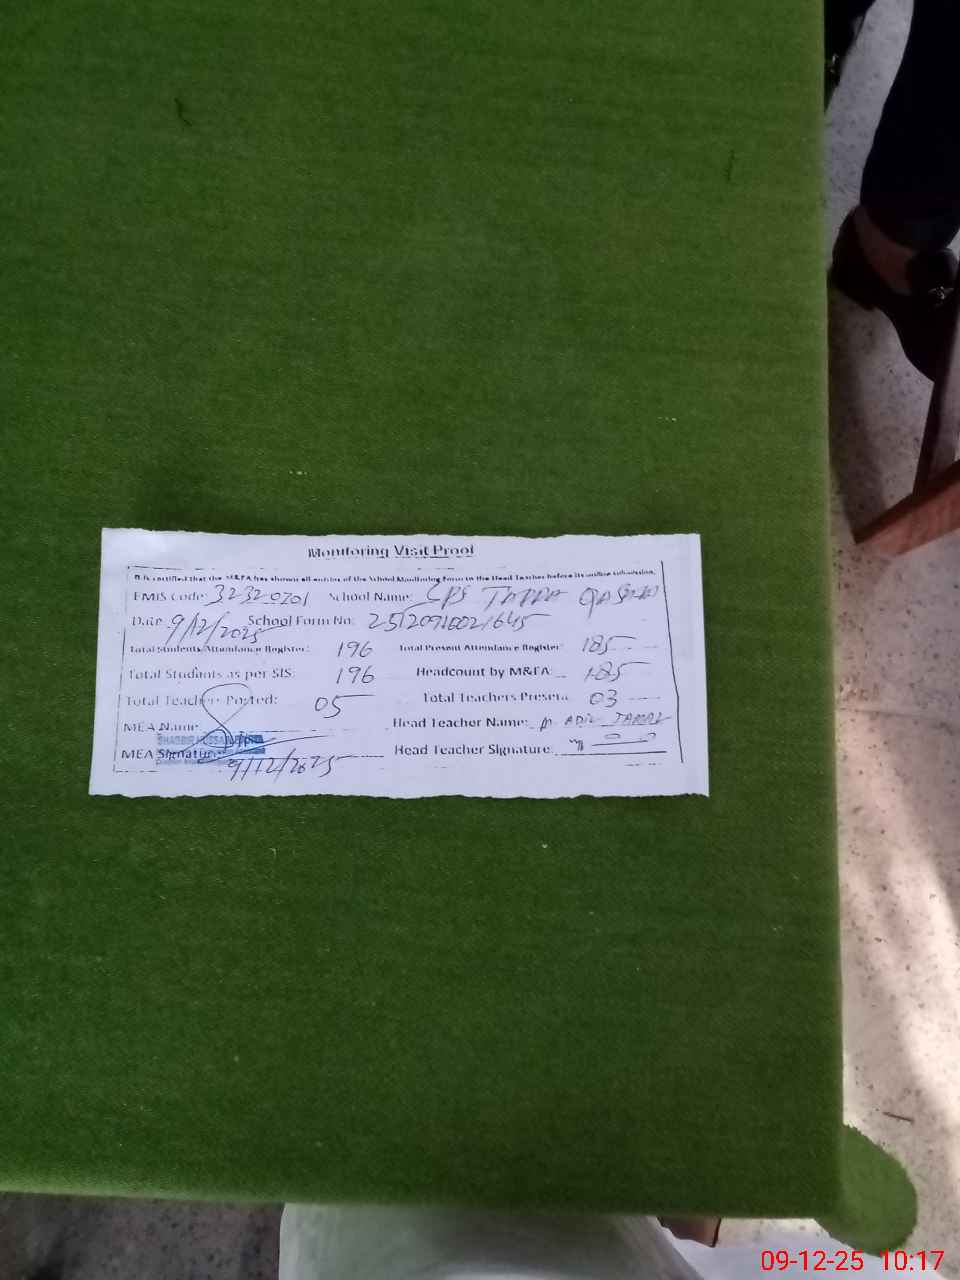 Monitoring Visit Proof
It is certified that the M&EA has shown all entries of the School Monitoring Form to the Head Teacher before its online submission.
EMIS Code: 32320201 School Name: GPS
Date 9/12/2025 School Form No: 25120910021645
Total Students Attendance Register: 196 Total Present Attendance Register: 185
Total Students as per SIS: 196 Headcount by M&EA: 185
Total Teachers Posted: 05 Total Teachers Present: 03
MEA Name: Head Teacher Name: M. ADIL
MEA Signature Head Teacher Signature:
9/12/2025
09-12-25 10:17